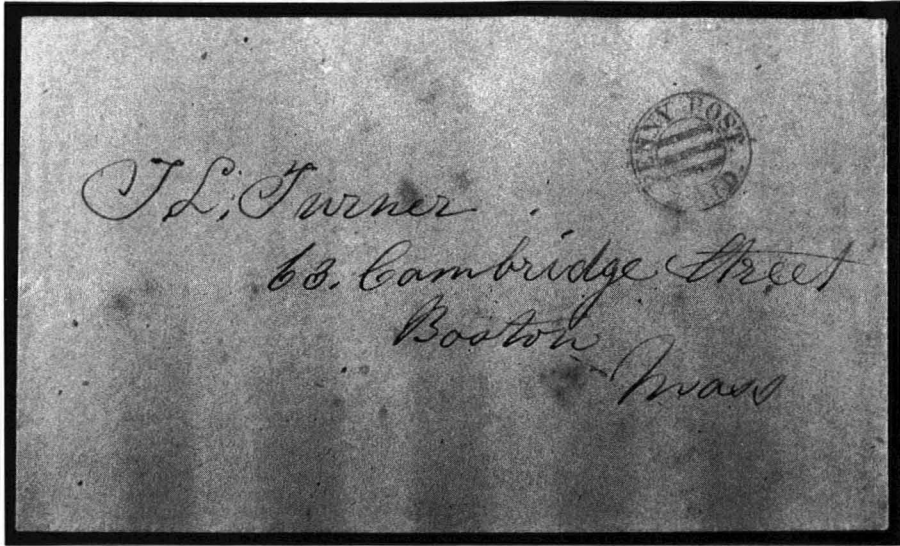 PENNY POST
PAID
T L. Turner
63. Cambridge Street
Boston
Mass